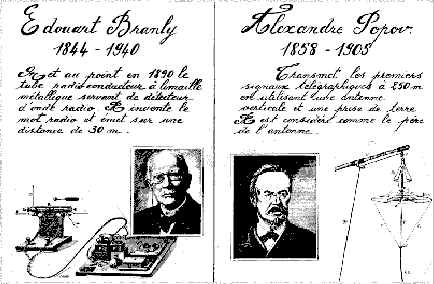 Edouart Branly
1844 - 1940
Met au point en 1890 le
tube radioconducteur à limaille
métallique servant de détecteur
d'onde radio. Il invente le
mot radio et émet sur une
distance de 30 m.
Alexandre Popov.
1858 - 1905
Transmet les premiers
signaux télégraphiques à 250 m
en utilisant une antenne
verticale et une prise de terre
Il est considéré comme le père
de l'antenne.